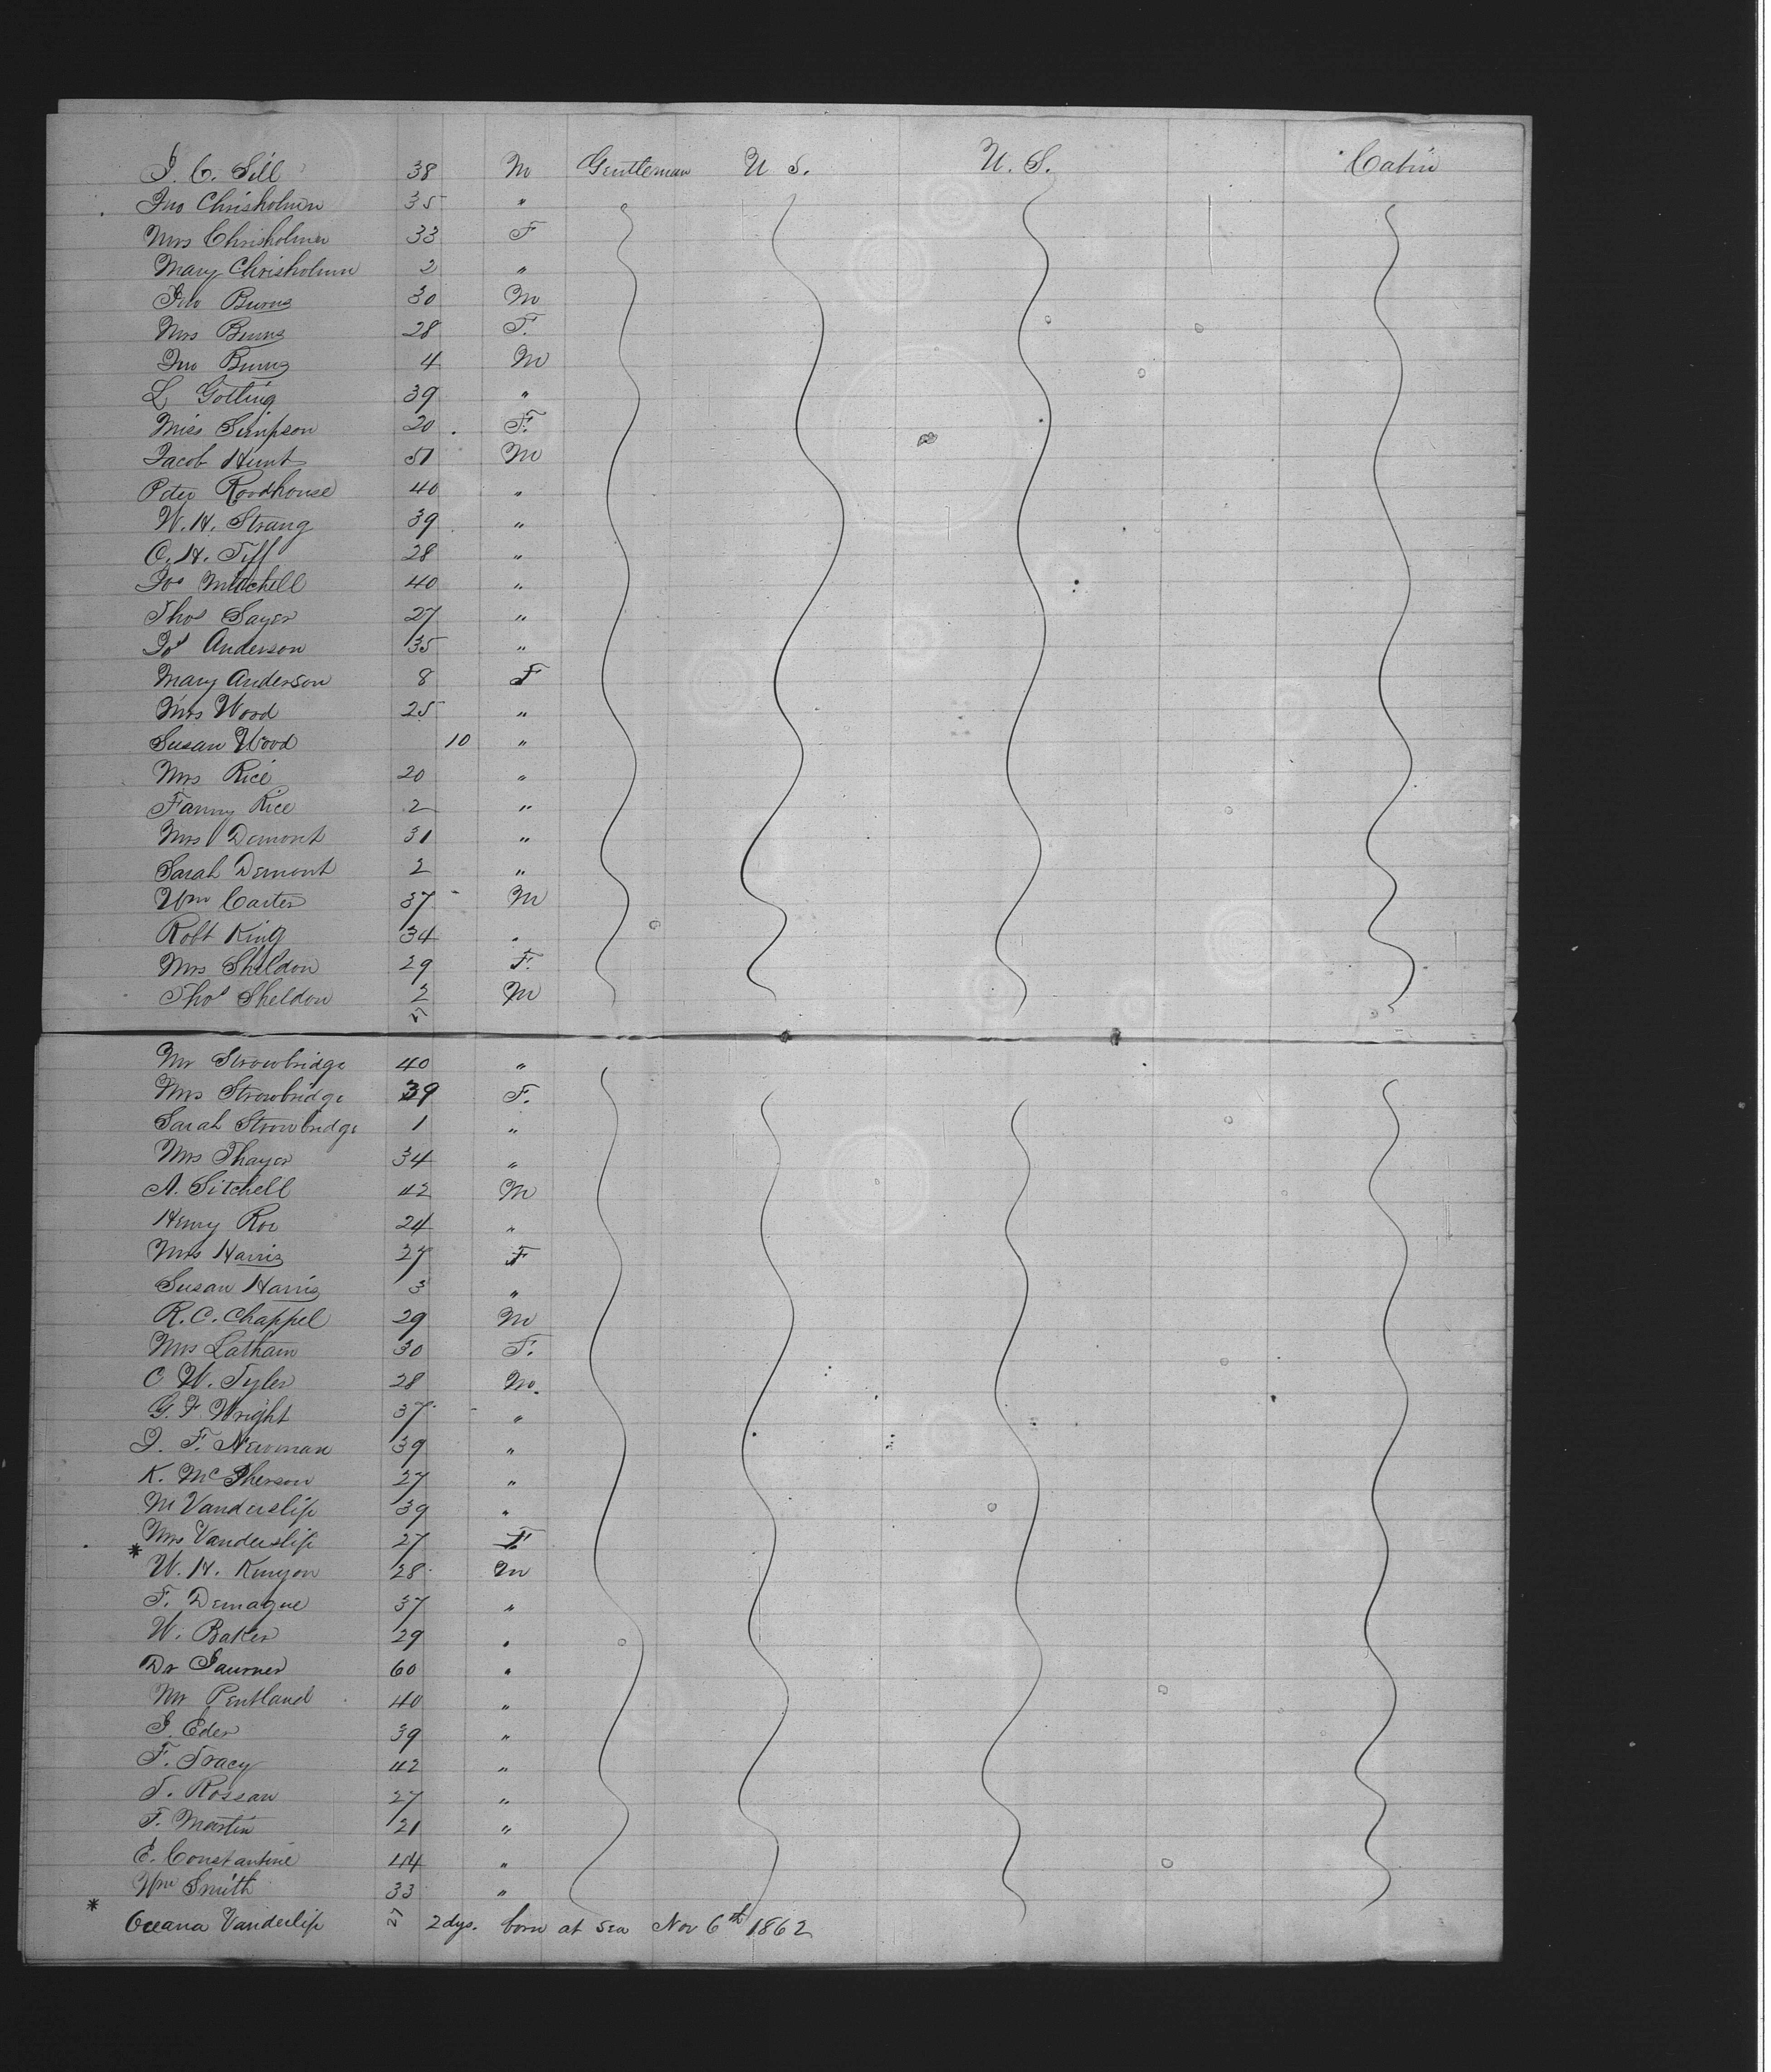 J. C. Sill 38 M Gentleman U S. U. S. Cabin
Jno Chrisholmn 35 "
Mrs Chrisholmn 33 F
Mary Chrisholmn 2 "
Jno Burns 30 M
Mrs Burns 28 F.
Jno Burns 4 M
L Gotting 39 "
Miss Simpson 20 F.
Jacob Hunt 51 M
Peter Roodhouse 40 "
W. H. Strang 39 "
C. H. Tiff 28 "
Jos Mitchell 40 "
Thos Sayer 27 "
Jos Anderson 35 "
Mary Anderson 8 F
Mrs Wood 25 "
Susan Wood 10 "
Mrs Rice 20 "
Fanny Rice 2 "
Mrs Demont 31 "
Sarah Demont 2 "
Wm Carter 37 M
Robt King 34 "
Mrs Sheldon 29 F.
Thos Sheldon 2 M
27
Mr Strowbridge 40 "
Mrs Strowbridge 39 F.
Sarah Strowbridge 1 "
Mrs Thayer 34 "
A. Sitchell 42 M
Henry Roe 24 "
Mrs Harris 27 F
Susan Harris 3 "
R. C. Chappel 29 M
Mrs Latham 30 F.
C W. Tyler 28 M.
G. F. Wright 37 "
J. F. Newman 39 "
K. McPherson 27 "
M Vanderslip 39 "
Mrs Vanderslip 27 F.
* W. H. Kinyon 28 M
F. Demague 37 "
W. Baker 29 "
Dr 60 "
Mr Pentland 40 "
J. Eder 39 "
F. Tracy 42 "
T. Rossan 27 "
F. Martin 21 "
E. Constantine 44 "
Wm Smith 33 "
* Oceana Vanderlip 27 2 dys. born at sea Nov 6th 1862